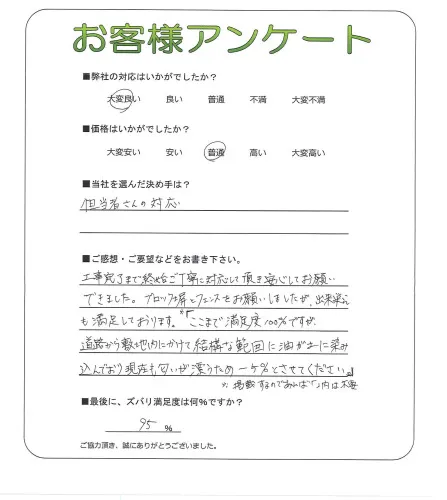 お客様アンケート
■弊社の対応はいかがでしたか？
大変良い 良い 普通 不満 大変不満
■価格はいかがでしたか？
大変安い 安い 普通 高い 大変高い
■当社を選んだ決め手は？
担当者さんの対応
■ご感想・ご要望などをお書き下さい。
工事完了まで終始ご丁寧に対応して頂き安心してお願い
できました。ブロック塀とフェンスをお願いしましたが、出来栄え
も満足しております。*「ここまで満足度100%ですが、
道路から敷地内にかけて結構な範囲に油がおに染み
込んでおり現在も匂いが漂うため－5%とさせてください。」
※掲載するのであれば「」内は不要
■最後に、ズバリ満足度は何%ですか？
95 %
ご協力頂き、誠にありがとうございました。